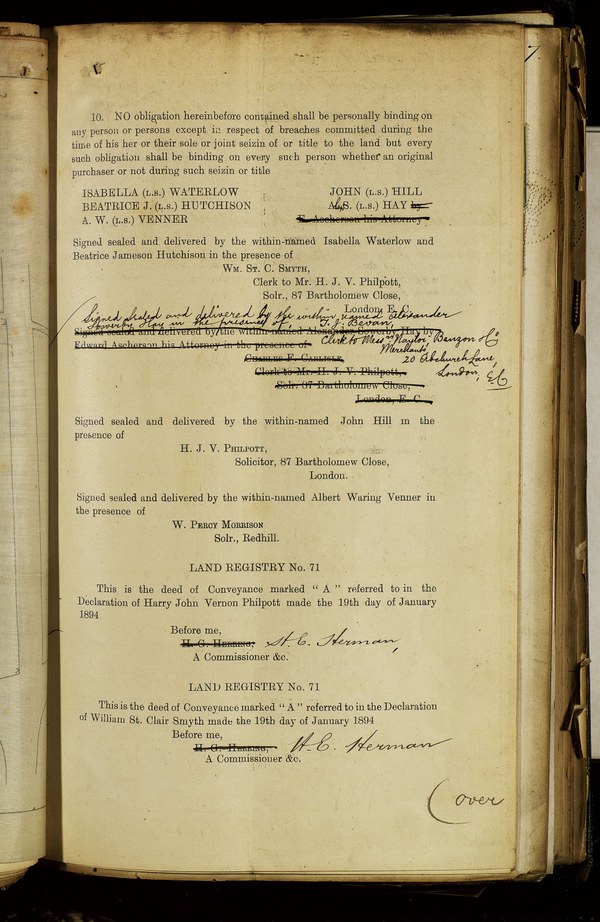 10. NO obligation hereinbefore contained shall be personally binding on
any person or persons except in respect of breaches committed during the
time of his her or their sole or joint seizin of or title to the land but every
such obligation shall be binding on every such person whether an original
purchaser or not during such seizin or title
ISABELLA (L.S.) WATERLOW
BEATRICE J. (L.S.) HUTCHISON
A. W. (L.S.) VENNER
JOHN (L.S.) HILL
A. S. (L.S.) HAY by
E. Ascherson his Attorney
Signed sealed and delivered by the within-named Isabella Waterlow and
Beatrice Jameson Hutchison in the presence of
WM. ST. C. SMYTH,
Clerk to Mr. H. J. V. Philpott,
Solr., 87 Bartholomew Close,
London, E. C.
Signed sealed and delivered by the within named Alexander
Sowerby Hay in the presence of, T. J. Bevan,
Signed sealed and delivered by the within-named Alexander Sowerby Hay by
Clerk to Messrs Naylor, Benzon & Co
Edward Ascherson his Attorney in the presence of
Merchants,
CHARLES F. CARLISLE,
20 Abchurch Lane,
Clerk to Mr. H. J. V. Philpott,
London, E.C
Solr. 87 Bartholomew Close,
London, E. C.
Signed sealed and delivered by the within-named John Hill in the
presence of
H. J. V. PHILPOTT,
Solicitor, 87 Bartholomew Close,
London.
Signed sealed and delivered by the within-named Albert Waring Venner in
the presence of
W. PERCY MORRISON
Solr., Redhill.
LAND REGISTRY No. 71
This is the deed of Conveyance marked “ A ” referred to in the
Declaration of Harry John Vernon Philpott made the 19th day of January
1894
Before me,
H. G. HERRING, H. C. Herman,
A Commissioner &c.
LAND REGISTRY No. 71
This is the deed of Conveyance marked “ A ” referred to in the Declaration
of William St. Clair Smyth made the 19th day of January 1894
Before me,
H. G. HERRING, H. C. Herman
A Commissioner &c.
(over